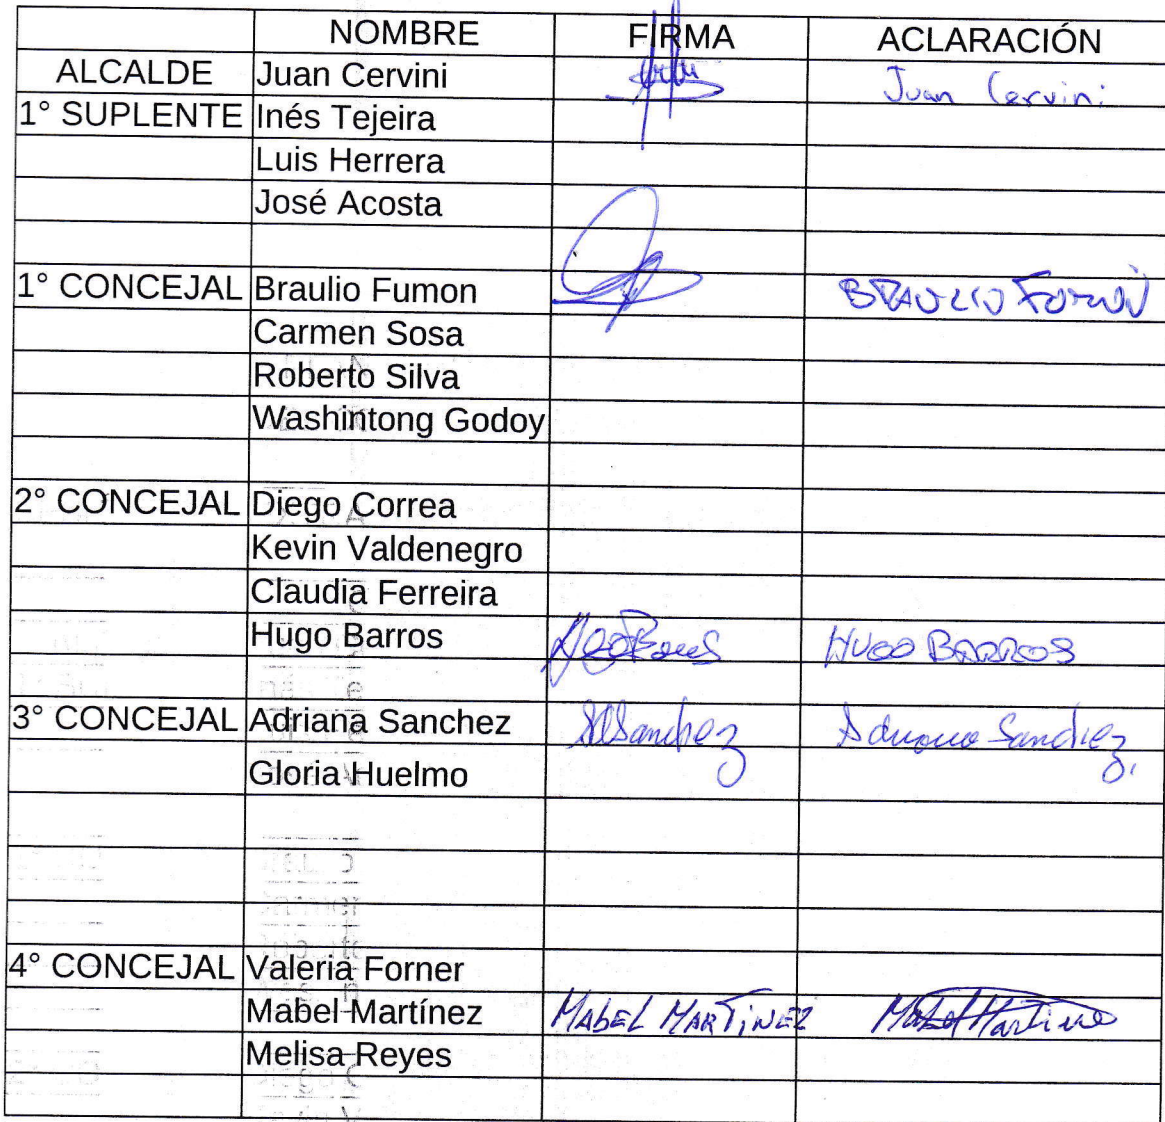 NOMBRE FIRMA ACLARACIÓN
ALCALDE Juan Cervini Juan Cervini
1° SUPLENTE Inés Tejeira
Luis Herrera
José Acosta
1° CONCEJAL Braulio Fumon BRAULIO FUMON
Carmen Sosa
Roberto Silva
Washintong Godoy
2° CONCEJAL Diego Correa
Kevin Valdenegro
Claudia Ferreira
Hugo Barros HUGO BARROS
3° CONCEJAL Adriana Sanchez Sanchez Adriana Sanchez
Gloria Huelmo
4° CONCEJAL Valeria Forner
Mabel Martínez MABEL MARTINEZ Mabel Martinez
Melisa Reyes